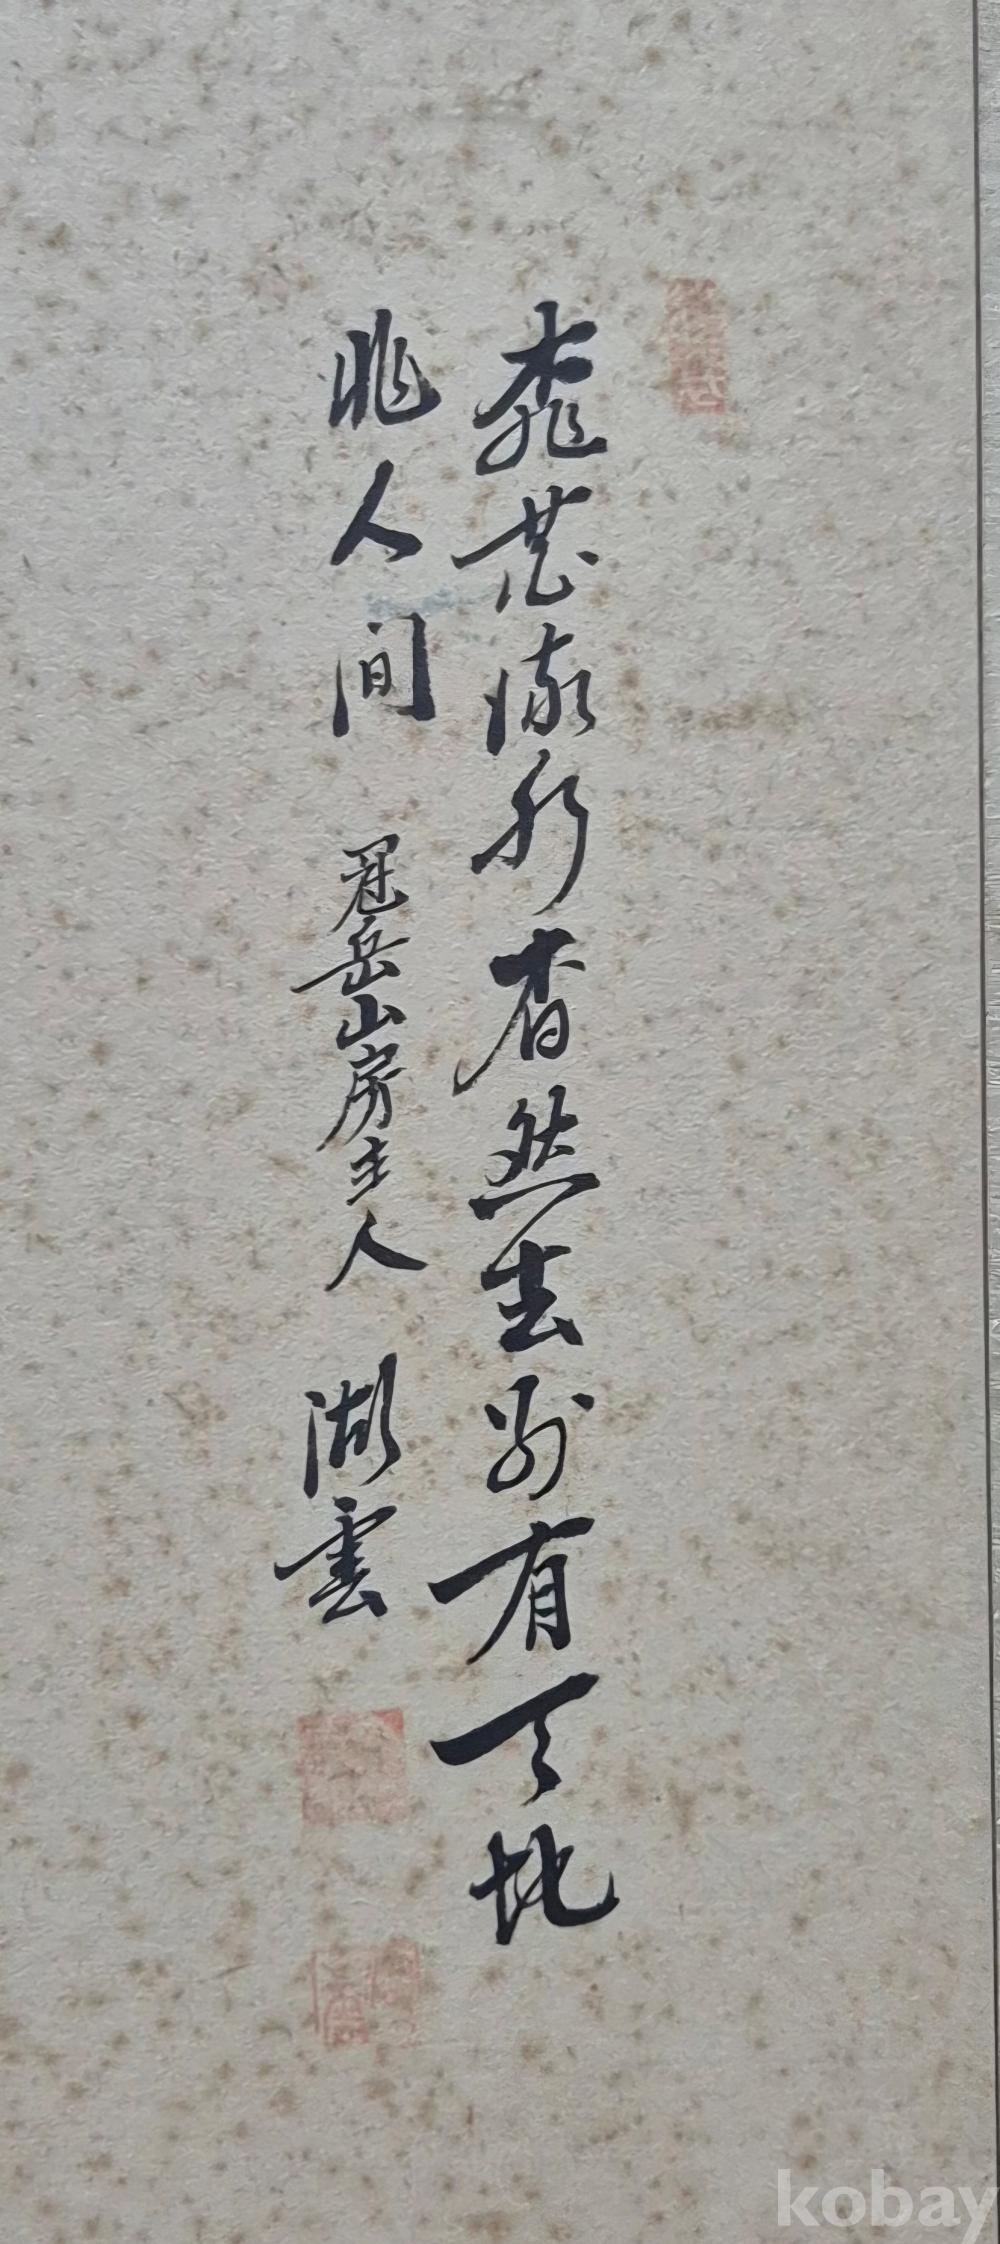 桃花流水杳然去別有天地
非人间
冠岳山房主人
湖雲
kobay